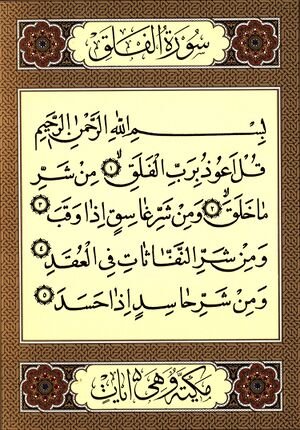 سُورَةُ الفَلَق
بِسْمِ اللهِ الرَّحْمٰنِ الرَّحِيمِ
قُلْ اَعُوذُ بِرَبِّ الْفَلَقِۙ ﴿١﴾ مِنْ شَرِّ
مَا خَلَقَۙ ﴿٢﴾ وَمِنْ شَرِّ غَاسِقٍ اِذَا وَقَبَۙ ﴿٣﴾
وَمِنْ شَرِّ النَّفَّاثَاتِ فِي الْعُقَدِۙ ﴿٤﴾
وَمِنْ شَرِّ حَاسِدٍ اِذَا حَسَدَ ﴿٥﴾
مَكِّيَّةٌ وَهِيَ ٥ اٰيَاتٍ